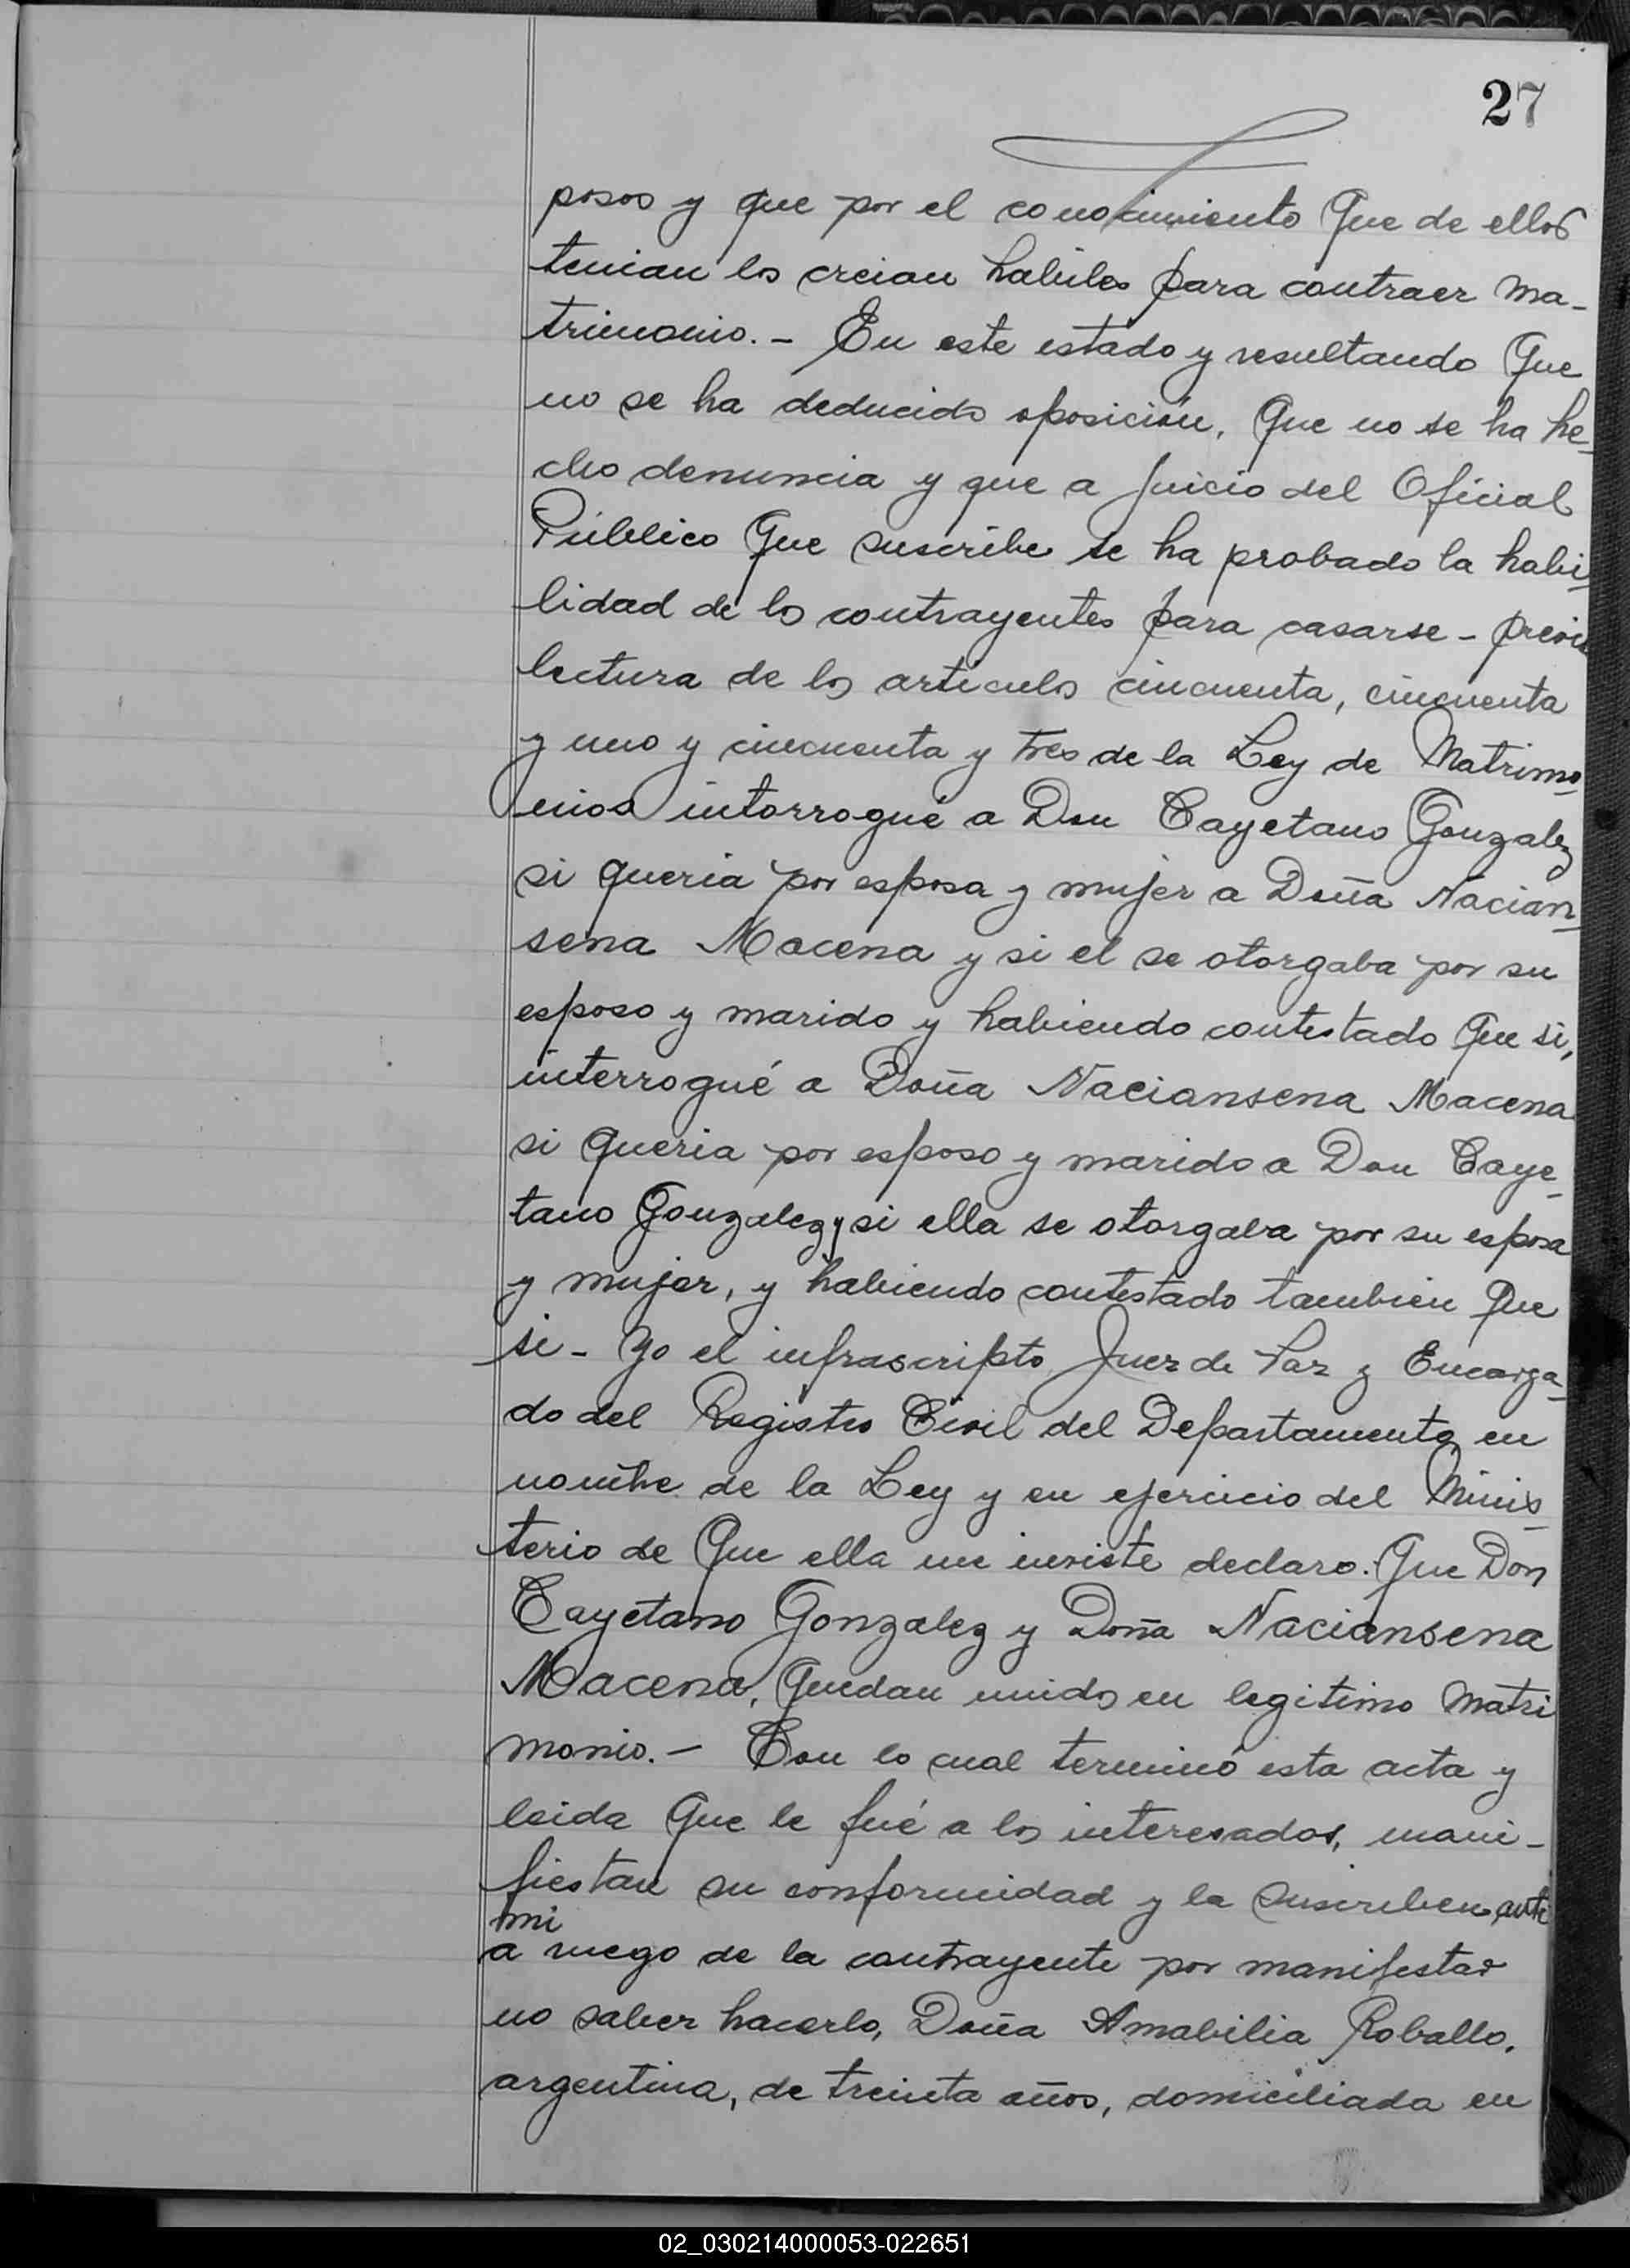 27
posos y que por el conocimiento que de ellos
tenian los creian habiles para contraer ma-
trimonio. - En este estado y resultando que
no se ha deducido oposición, que no se ha he-
cho denuncia y que a juicio del Oficial
Público que suscribe se ha probado la habi-
lidad de los contrayentes para casarse - previa
lectura de los articulos cincuenta, cincuenta
y uno y cincuenta y tres de la Ley de Matrimo-
nios intorrogué a Don Cayetano Gonzalez
si queria por esposa y mujer a Doña Nacian-
sena Macena y si el se otorgaba por su
esposo y marido y habiendo contestado que si,
interrogué a Doña Naciansena Macena
si queria por esposo y marido a Don Caye-
tano Gonzalez y si ella se otorgaba por su esposa
y mujer, y habiendo contestado tambien que
si - Yo el infrascripto Juez de Paz y Encarga-
do del Registro Civil del Departamento en
nombre de la Ley y en ejercicio del Minis-
terio de que ella me inviste declaro. Que Don
Cayetano Gonzalez y Doña Naciansena
Macena, quedan unidos en legitimo Matri
monio. - Con lo cual terminó esta acta y
leida que le fué a los interesados, mani-
fiestan su conformidad y la suscriben ante
mi
a ruego de la contrayente por manifestar
no saber hacerlo, Doña Amabilia Roballo,
argentina, de treinta años, domiciliada en
02_030214000053-022651